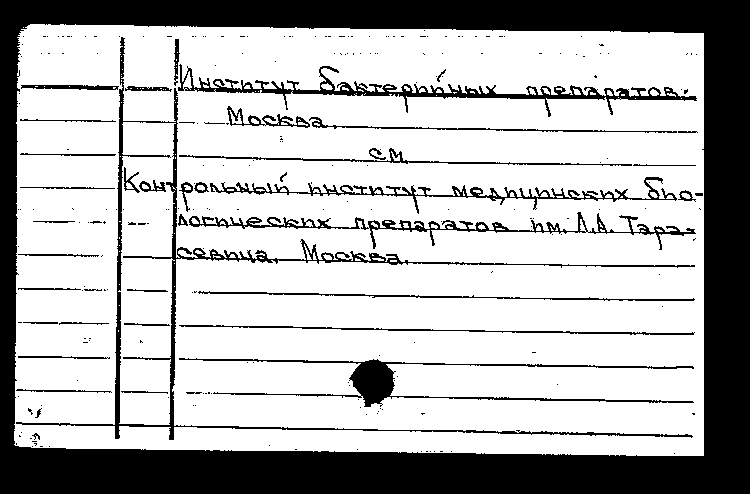 Институт бактерийных препаратов.
Москва.
см.
Контрольный институт медицинских био-
логических препаратов им. Л.А. Тара-
севича. Москва.